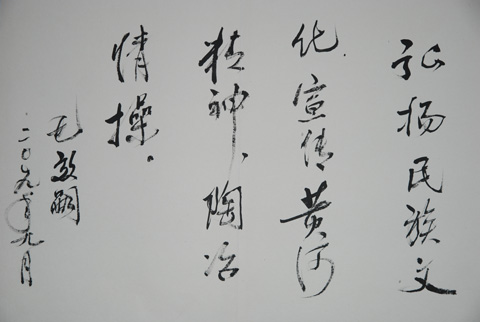 弘扬民族文
化宣传黄河
精神、陶冶
情操。
毛致嗣
二〇〇九年九月